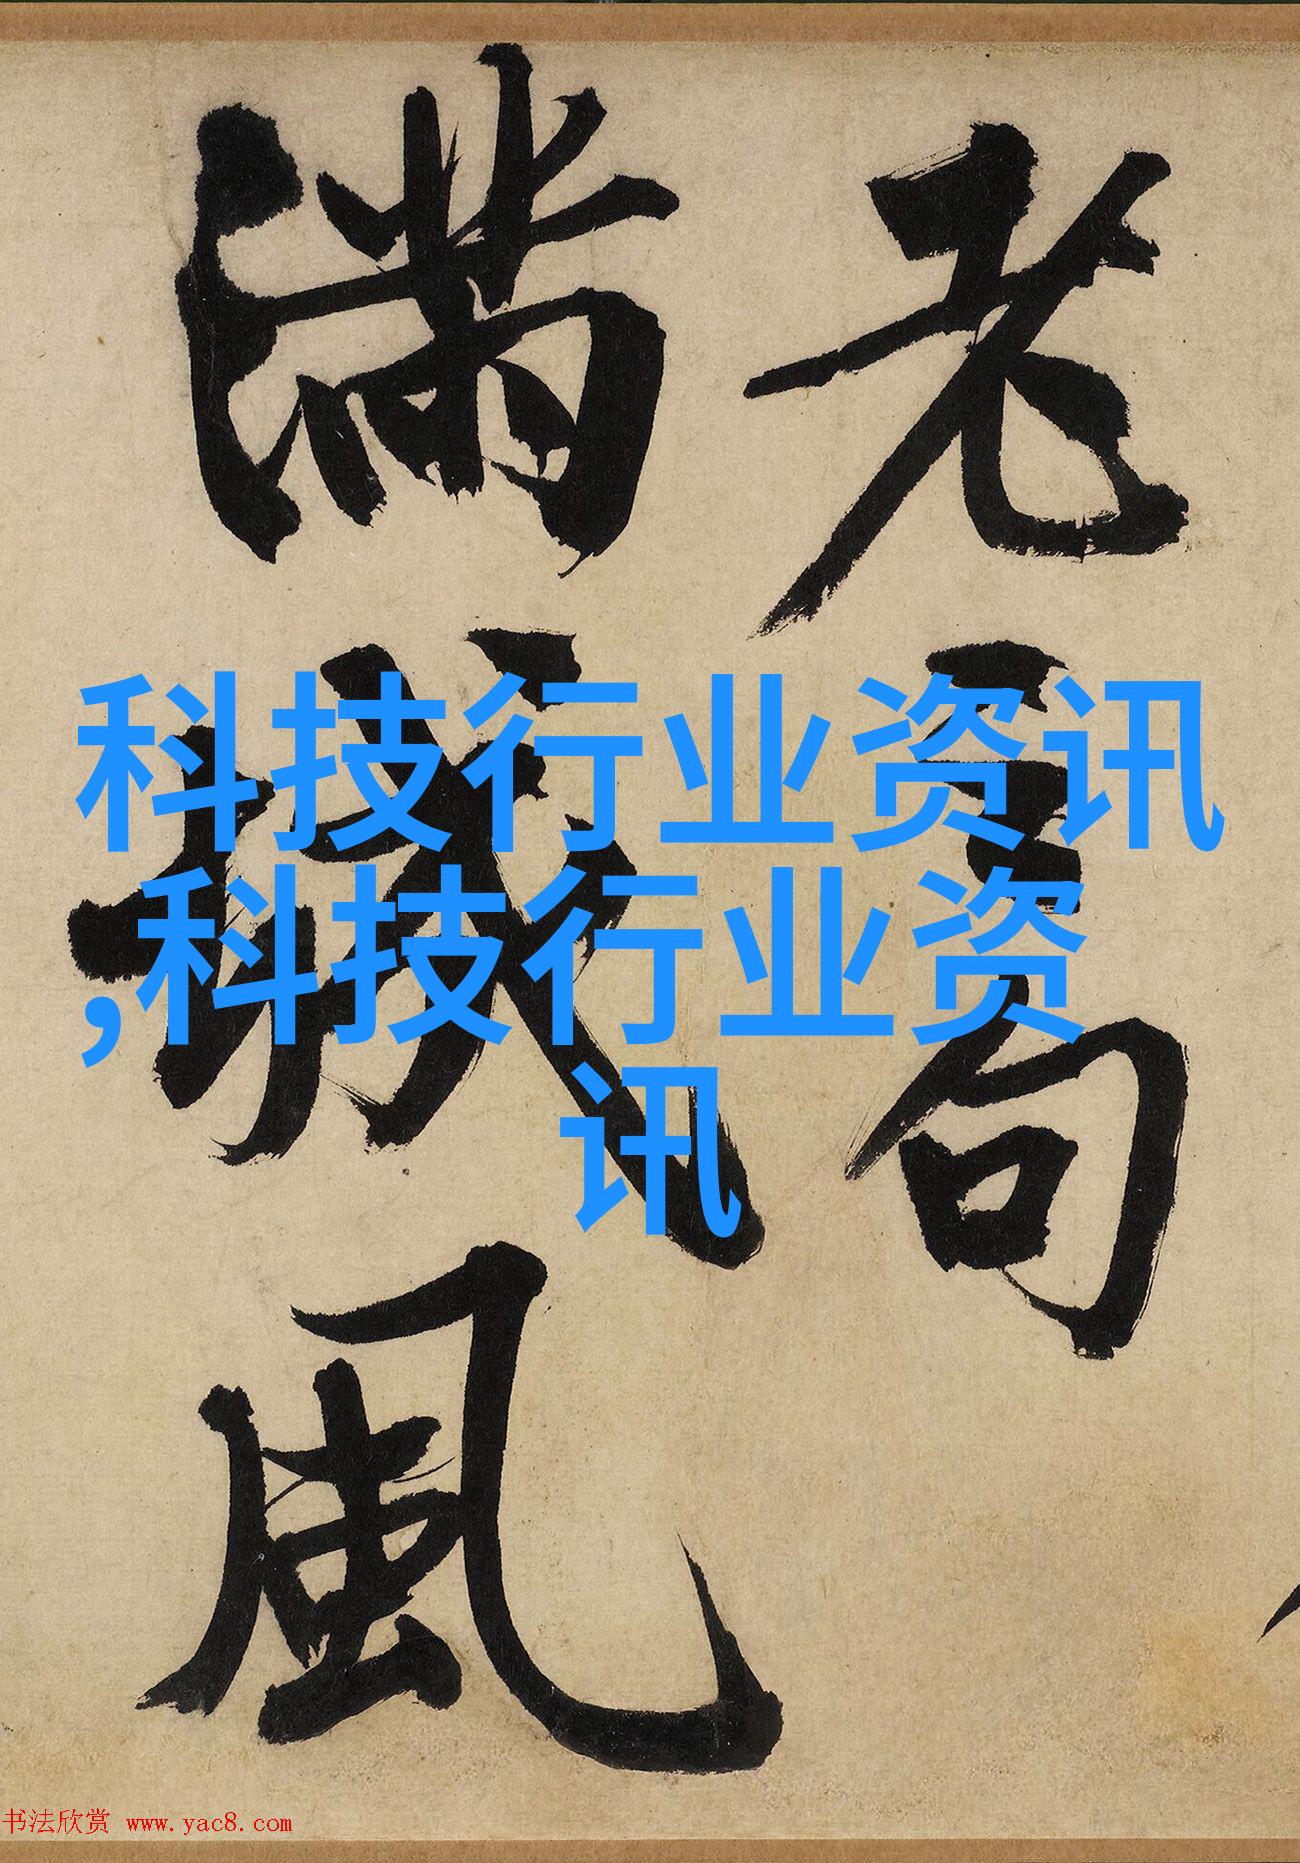 老
句
滿城風
科技行业资讯
,科技行业资
讯
书法欣赏 www.yac8.com